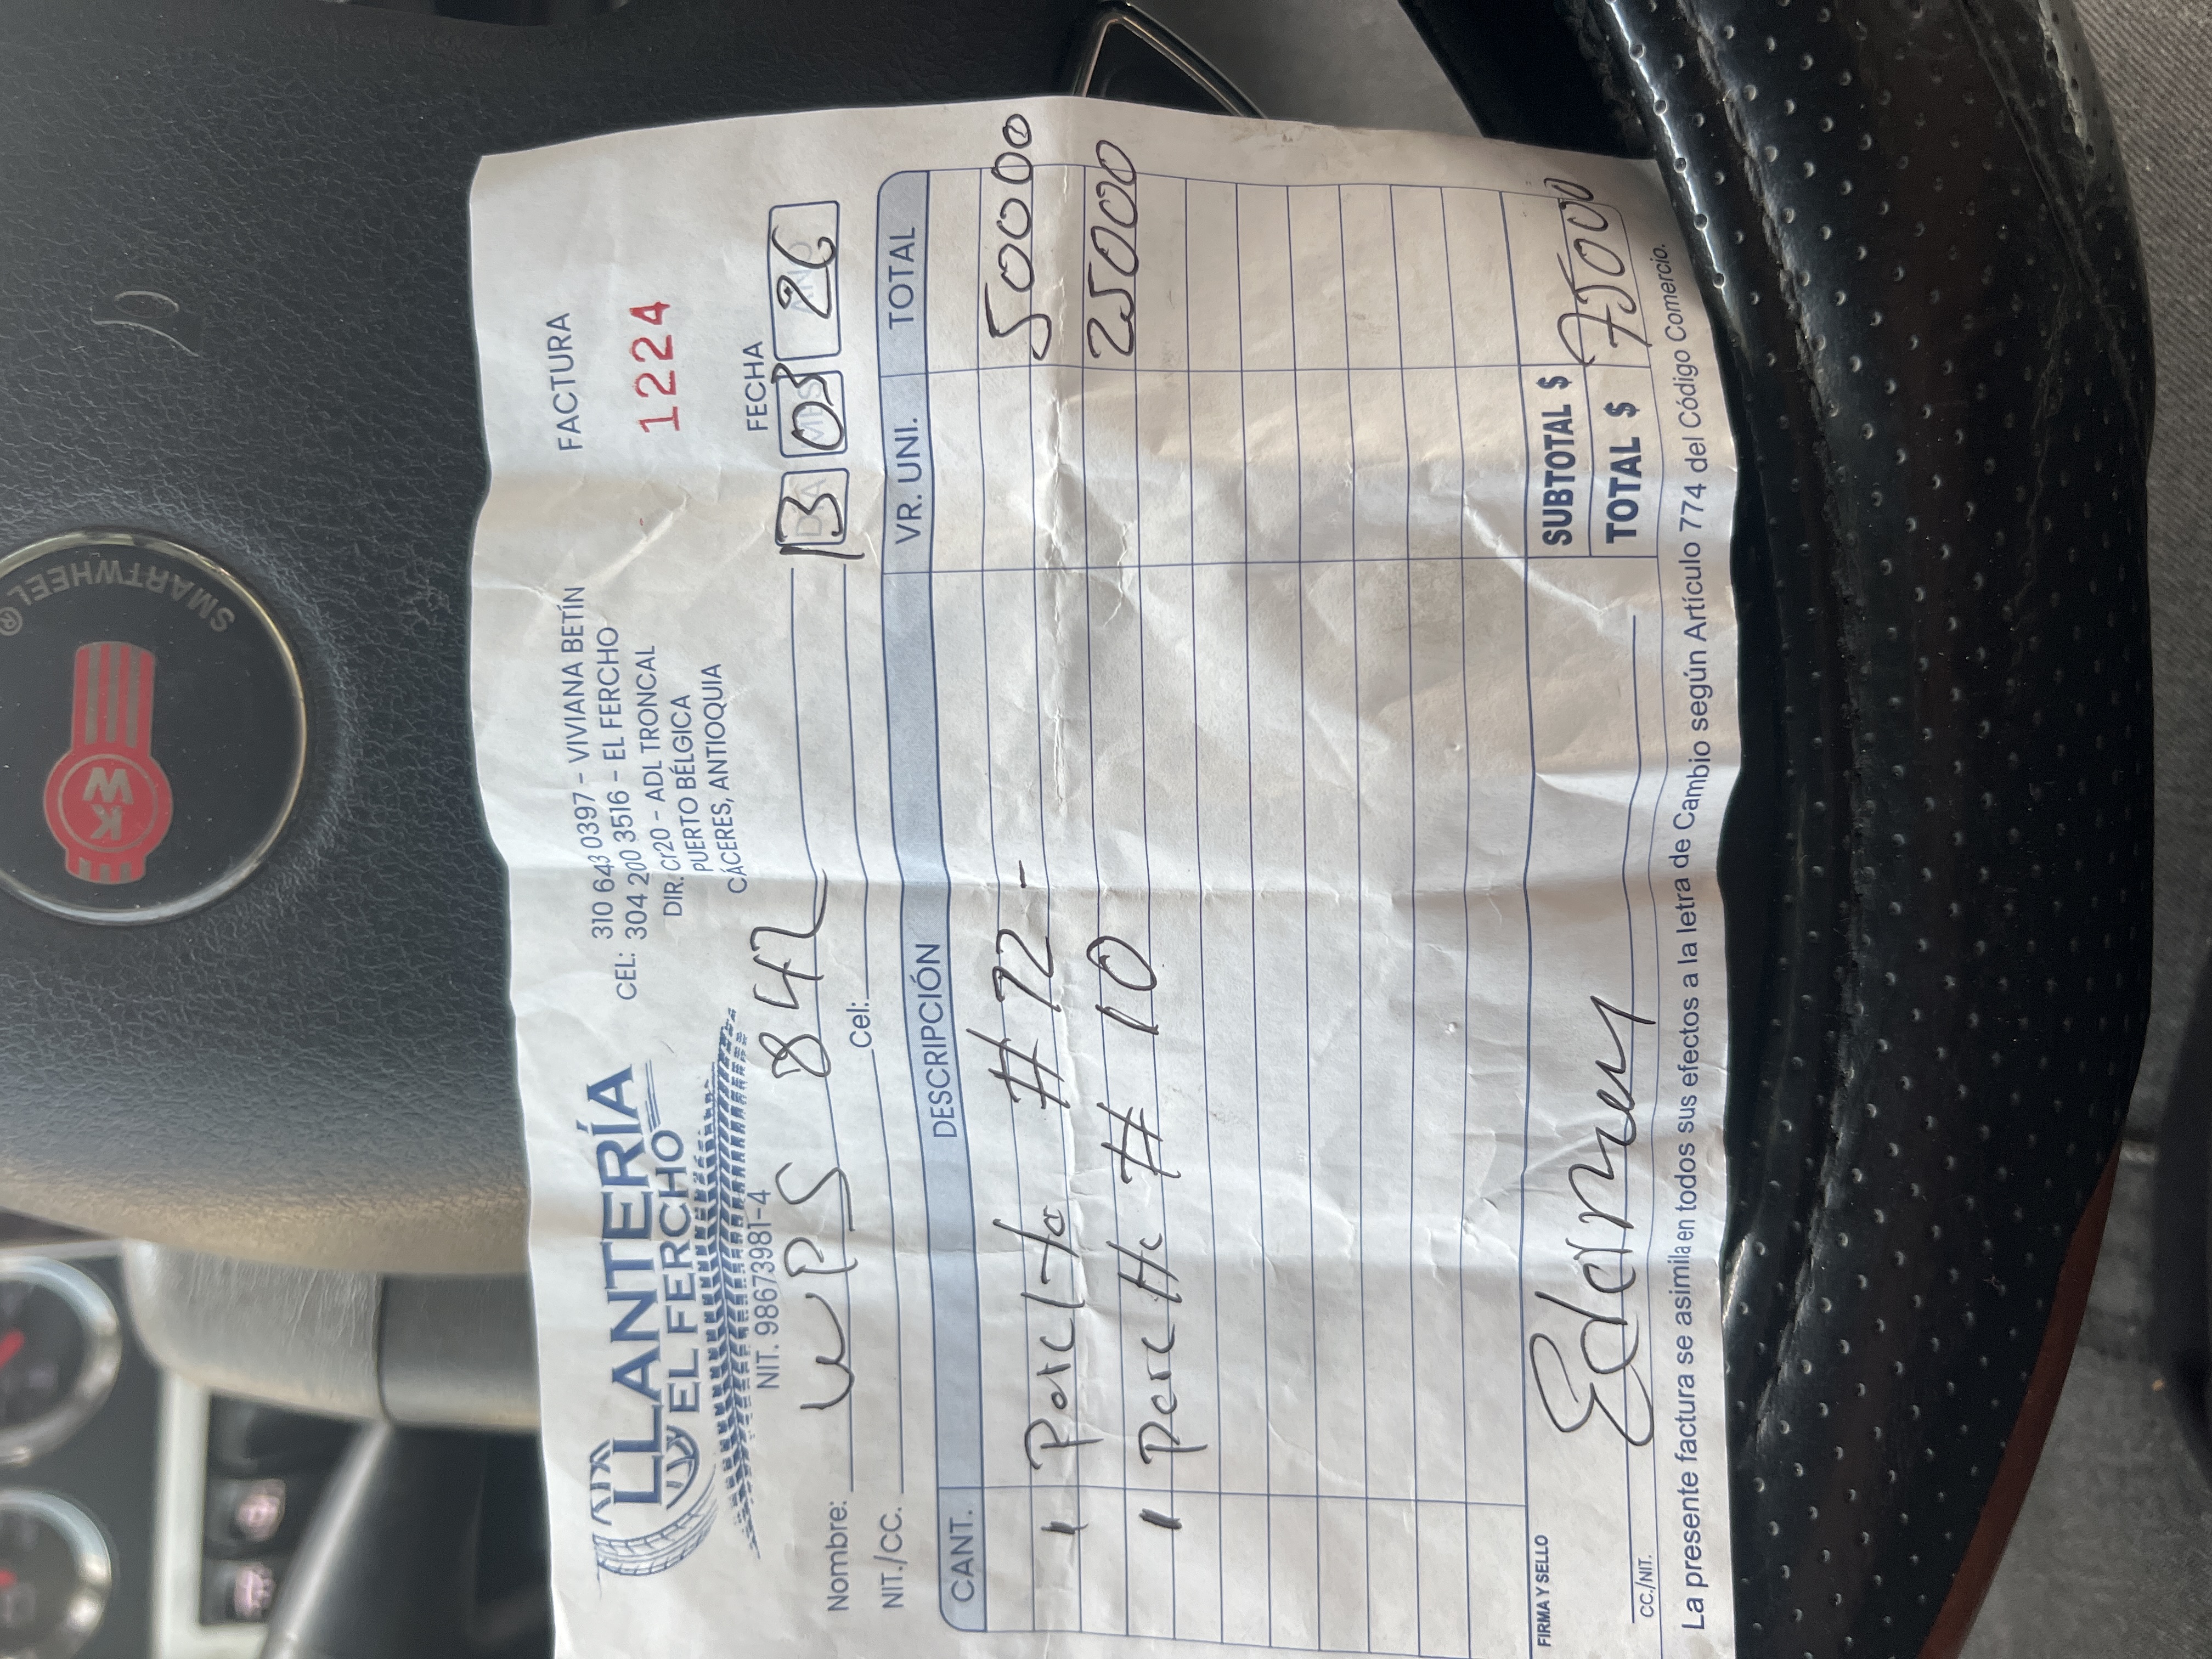 SMARTWHEEL®
KW
LLANTERÍA
EL FERCHO
NIT. 98673981-4
CEL: 310 643 0397 - VIVIANA BETÍN
304 200 3516 - EL FERCHO
DIR. Cr20 - ADL TRONCAL
PUERTO BÉLGICA
CÁCERES, ANTIOQUIA
FACTURA
1224
FECHA
13 03 26
Nombre: WPS 842
NIT./CC. Cel:
CANT. DESCRIPCIÓN VR. UNI. TOTAL
1 # 50000
1 # 10 25000
SUBTOTAL $
TOTAL $ 75000
FIRMA Y SELLO
CC./NIT.
La presente factura se asimila en todos sus efectos a la letra de Cambio según Artículo 774 del Código Comercio.